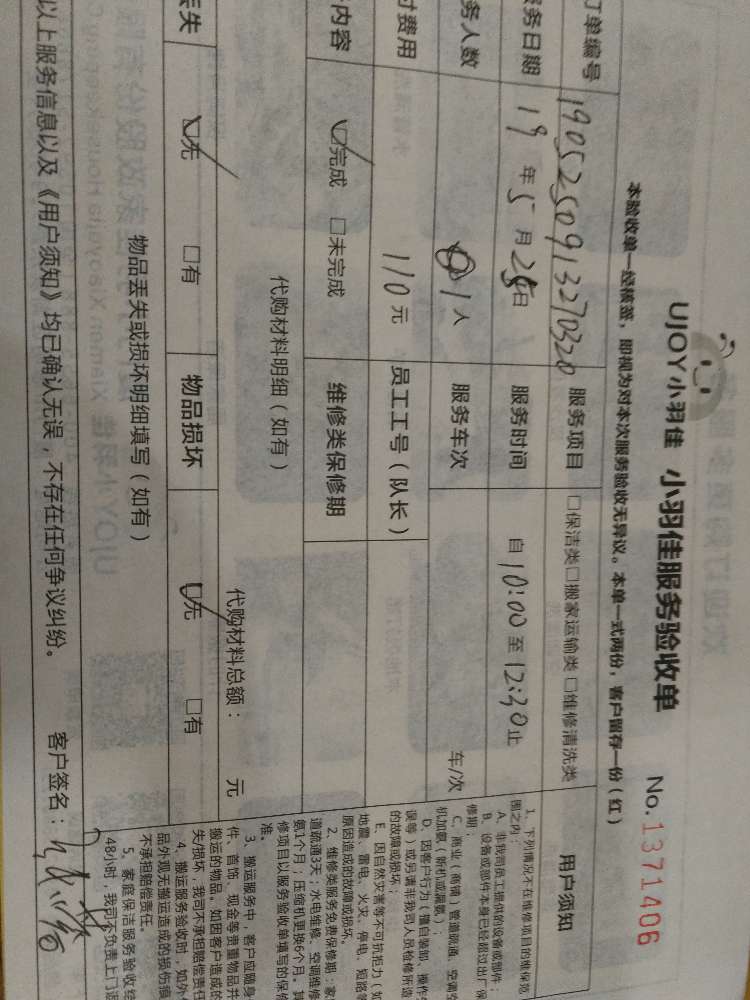 UJOY小羽佳 小羽佳服务验收单 No.1371406
本验收单一经核签，即视为对本次服务验收无异议。本单一式两份，客户留存一份（红）
订单编号 1905250913270320 服务项目 □保洁类□搬家运输类□维修清洗类
务日期 19年5月25日 服务时间 自10:00至12:30止
务人数 1人 服务车次 车/次
付费用 110元 员工工号（队长）
内容 ☑完成 □未完成 维修类保修期
代购材料明细（如有）
代购材料总额： 元
丢失 ☑无 □有 物品损坏 ☑无 □有
物品丢失或损坏明细填写（如有）
以上服务信息以及《用户须知》均已确认无误，不存在任何争议纠纷。 客户签名：
用户须知
1、下列情况不在维修项目的维保范
围之内：
A、非我司员工提供的设备或部件；
B、设备或部件本身已经超过出厂保
修期；
C、商业（商铺）管道疏通、空调空
机加氨（新机或漏氨）；
D、因客户行为（擅自装卸、操作失
误等）或另请非我司人员检修所造
的故障或损坏；
E、因自然灾害等不可抗拒力（如
地震、雷电、火灾、停电、短路等
原因造成的故障或损坏。
2、维修类服务免费保修期：家
道疏通3天；水电维修、空调维修
氨1个月；压缩机更换6个月。其
修项目以服务验收单填写的保修
准。
3、搬运服务中，客户应随身
件、首饰、现金等贵重物品并
搬运的物品。如因客户造成的
失/损坏，我司不承担赔偿责任
4、搬运服务验收时，如外
品外观无搬运造成的损伤痕
不承担赔偿责任。
5、家庭保洁服务验收结
48小时，我司不负责上门返